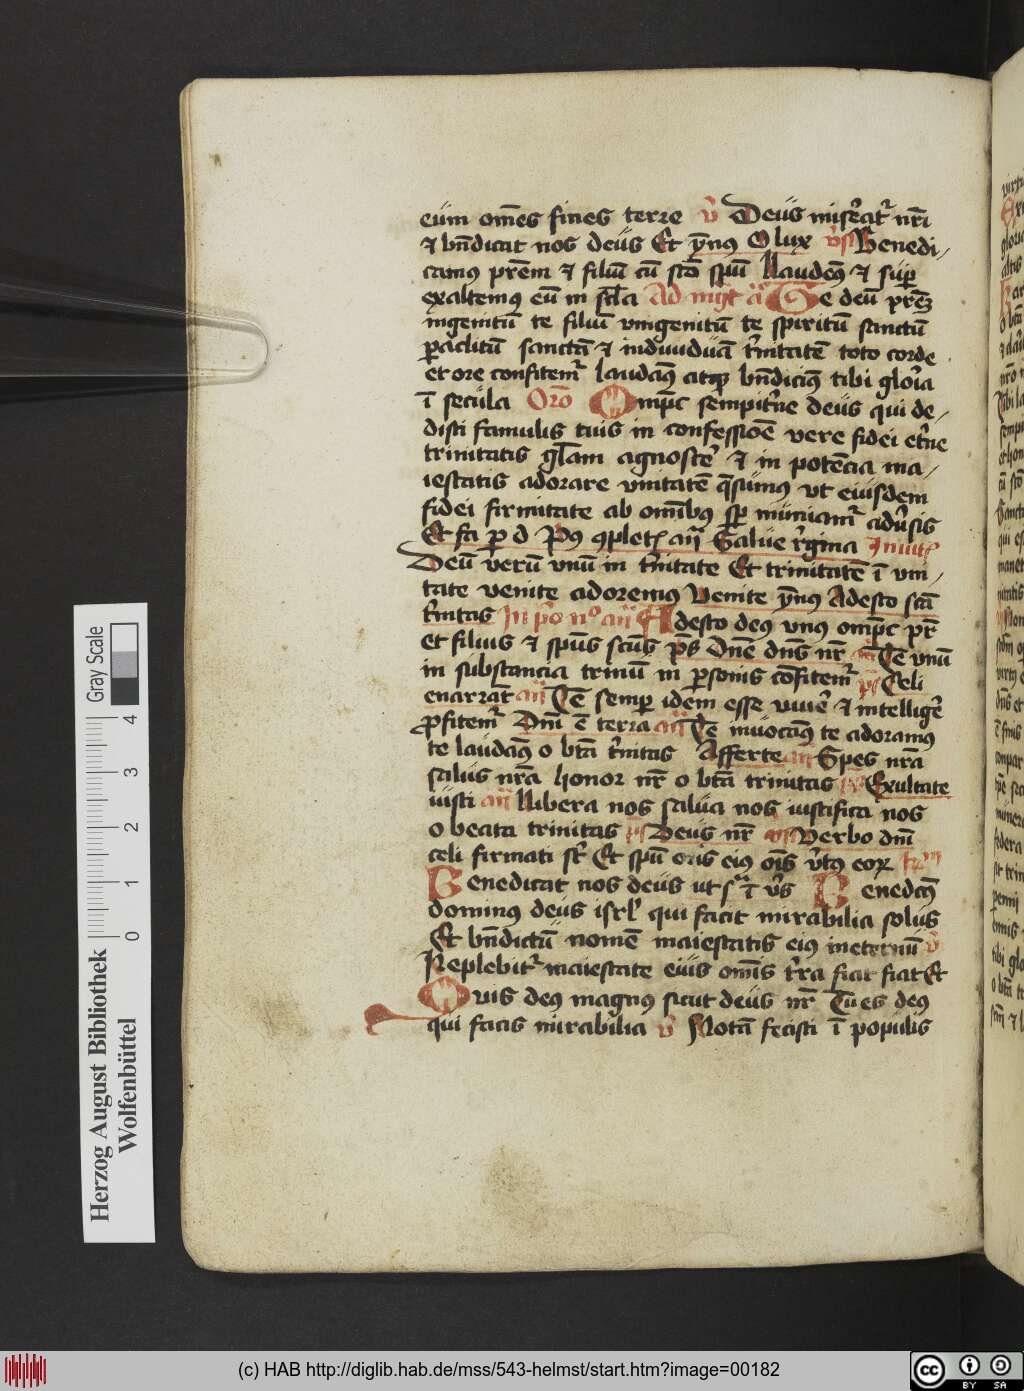 eum om̄es fines terre v̄ Deus mis̄eat᷑ nr̄i
⁊ bn̄dicat nos deus Et ẏnꝰ O lux v̄s Benedi-
camꝰ pr̄em ⁊ filiū cū sc̄o sp̄u Laudeꝰ ⁊ sup̄
exaltemꝰ eū in sc̄la Ad mgt̄ an̄ Te deū pr̄eꝫ
ingenitū te filiū vnigenitū te spiritū sanctū
ꝑaclitū sanctā ⁊ indiuiduā t'nitatē toto corde
et ore confitem᷑ laudaꝰ atqꝫ bn̄diciꝰ tibi glo'ia
ī secula Oro Omp̄c sempit'ne deus qui de-
disti famulis tuis in confessiōe vere fidei et'ne
trinitatis gl̄am agnosce' ⁊ in potēcia ma-
iestatis adorare vnitatē q̄sumꝰ vt eiusdem
fidei firmitate ab om̄ibꝰ sp̄ muniam᷑ adu'sis
Et fa ꝑ d Pꝰ ꝯplet᷑ an̄ Salue r'gina Inuit᷑
Deū verū vnū in t'nitate Et trinitatē ī vni-
tate venite adoremꝰ Venite ẏnꝰ Adesto sc̄ā
t'nitas In p'o n° an̄ Adesto deꝰ vnꝰ omp̄c pr̄
et filius ⁊ sp̄us sc̄us p̄s Dn̄e dn̄s nr̄ an̄ Te vnū
in substancia trinū in ꝑsonis cōfitem᷑ p̄s Celi
enarrāt an̄ Te semꝑ idem esse viue' ⁊ intellige'
ꝓfitem᷑ Dn̄i ē terra an̄ Te inuocaꝰ te adoramꝰ
te laudaꝰ o b̄tā t'nitas Afferte an̄ Spes nr̄a
salus nr̄a honor nr̄ o b̄tā trinitas p̄s Exultate
iusti an̄ Libera nos salua nos iustifica nos
o beata trinitas p̄s Deus nr̄ an̄ Verbo dn̄i
celi firmati st̄ Et sp̄u oris eiꝰ oīs v'tꝰ eoꝝ
Benedicat nos deus ut sᵃ ī v̄s Benedcꝰ
dominꝰ deus isrl̄ qui facit mirabilia solus
Et bn̄dictū nomē maiestatis eiꝰ ineternū v̄
Replebit᷑ maiestate eius om̄is t'ra fiat fiat Et
Quis deꝰ magnꝰ sicut deus nr̄ Tu es deꝰ
qui facis mirabilia v̄ Notā fecisti ī populis
Gray Scale
4
3
2
1
0
Herzog August Bibliothek
Wolfenbüttel
(c) HAB http://diglib.hab.de/mss/543-helmst/start.htm?image=00182
cc
BY SA